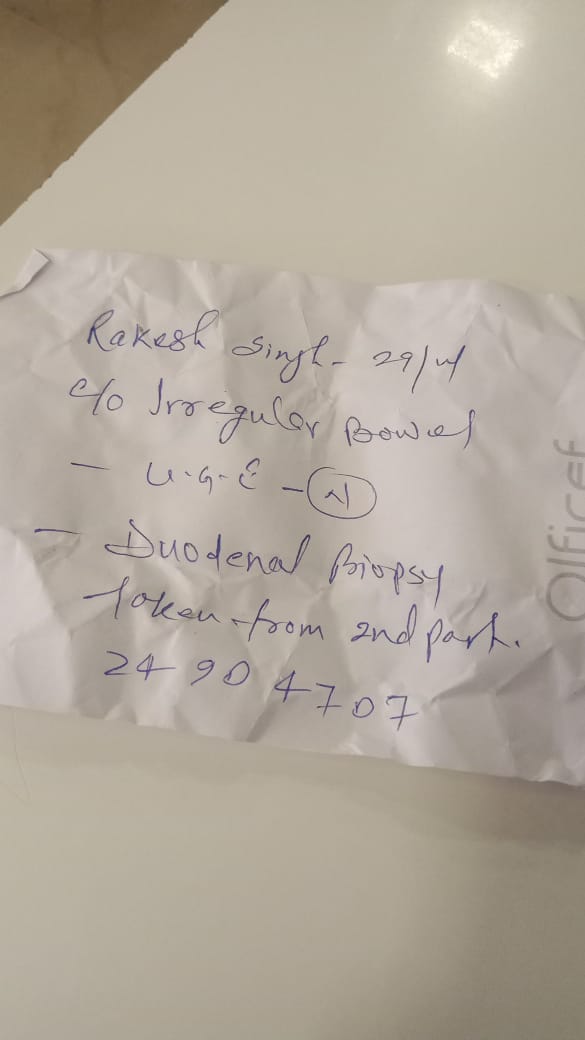 Rakesh Singh - 29/M
c/o Irregular Bowel
- U.G.E - N
- Duodenal Biopsy
taken from 2nd part.
24 90 4707